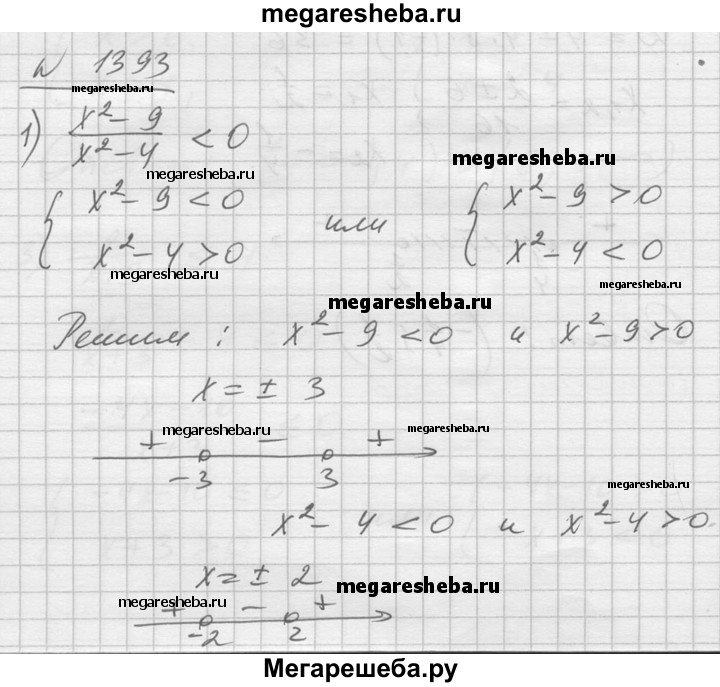 megaresheba.ru
№ 1393
megaresheba.ru
1) (x² - 9)/(x² - 4) < 0
megaresheba.ru
megaresheba.ru
{ x² - 9 < 0 или { x² - 9 > 0
x² - 4 > 0 x² - 4 < 0
megaresheba.ru
megaresheba.ru
megaresheba.ru
Решим : x² - 9 < 0 и x² - 9 > 0
x = ± 3
+ megaresheba.ru - + megaresheba.ru
-3 3
megaresheba.ru
x² - 4 < 0 и x² - 4 > 0
x = ± 2
megaresheba.ru
megaresheba.ru
+ - +
-2 2
Мегарешеба.ру